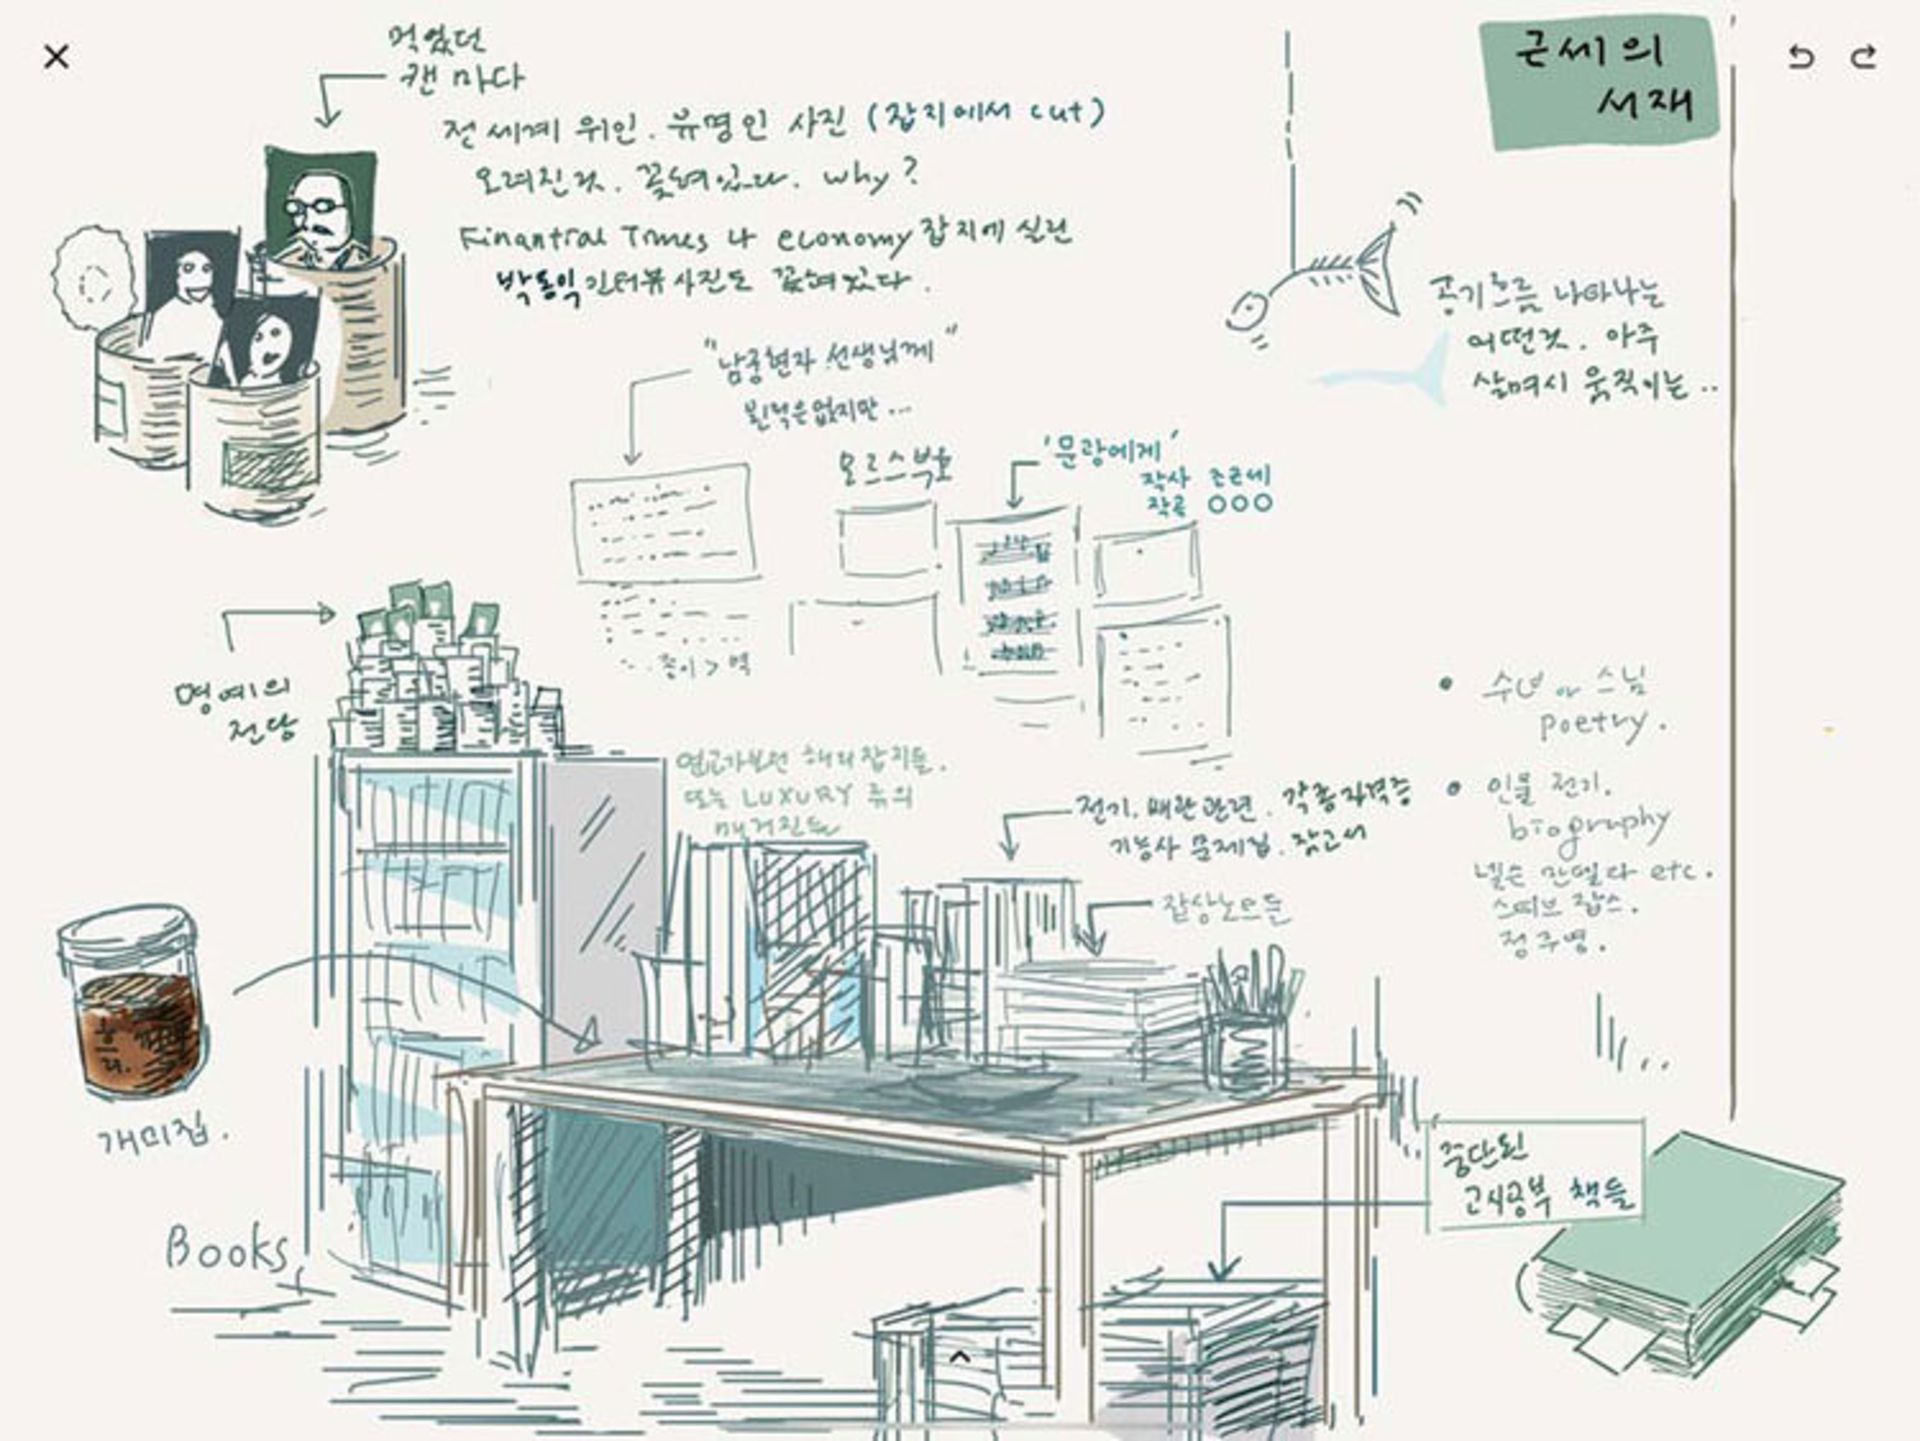 먹었던
캔 마다
전세계 위인. 유명인 사진 (잡지에서 cut)
오려진것. 꽂혀있다. why?
Finantial Times 나 economy 잡지에 실린
박동익 인터뷰 사진도 꽂혀있다.
근씨의
서재
공기흐름 나타나는
어떤것. 아주
살며시 움직이는..
"남궁현자 선생님께"
뵌적은 없지만...
모르스부호
'문광에게'
작사 오근세
작곡 ○○○
종이 > 벽
명예의
전당
해외 잡지들.
또는 LUXURY 류의
매거진들
전기. 배관 관련. 각종 자격증
기능사 문제집. 참고서
잡상노트들
수녀 or 스님
poetry.
인물 전기.
biography
넬슨 만델라 etc.
스티브 잡스.
정주영.
흙
개미집.
Books
중단된
고시공부 책들